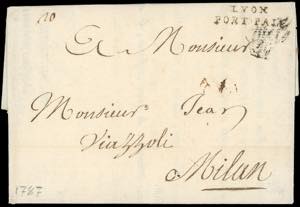 LYON
PORT PAYÉ
A Monsieur
Monsieur Jean
Viazzoli
Milan
1787